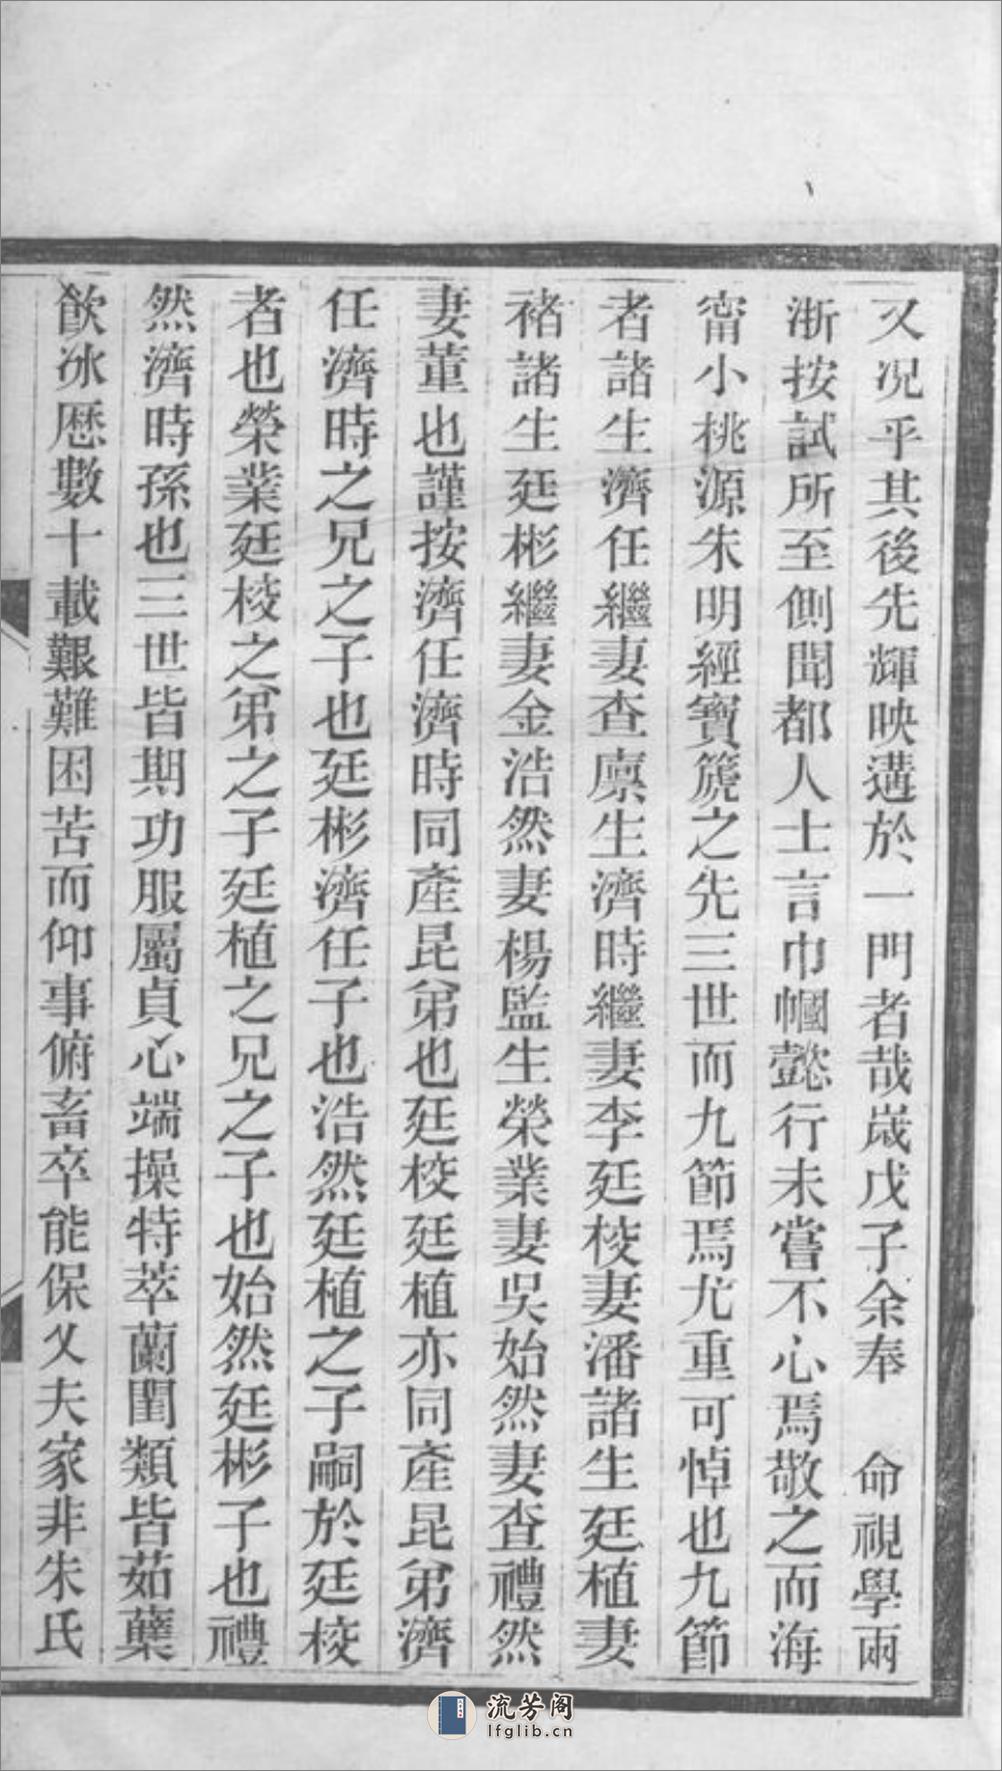 又況乎其後先輝映遘於一門者哉歲戊子余奉　命視學兩
浙按試所至側聞都人士言巾幗懿行未嘗不心焉敬之而海
甯小桃源朱明經寶箎之先三世而九節焉尤重可悼也九節
者諸生濟任繼妻查廩生濟時繼妻李廷校妻潘諸生廷植妻
褚諸生廷彬繼妻金浩然妻楊監生榮業妻吳始然妻查禮然
妻董也謹按濟任濟時同產昆弟也廷校廷植亦同產昆弟濟
任濟時之兄之子也廷彬濟任子也浩然廷植之子嗣於廷校
者也榮業廷校之弟之子廷植之兄之子也始然廷彬子也禮
然濟時孫也三世皆期功服屬貞心端操特萃蘭閨類皆茹蘗
飲冰歷數十載艱難困苦而仰事俯畜卒能保乂夫家非朱氏
流芳阁
lfglib.cn